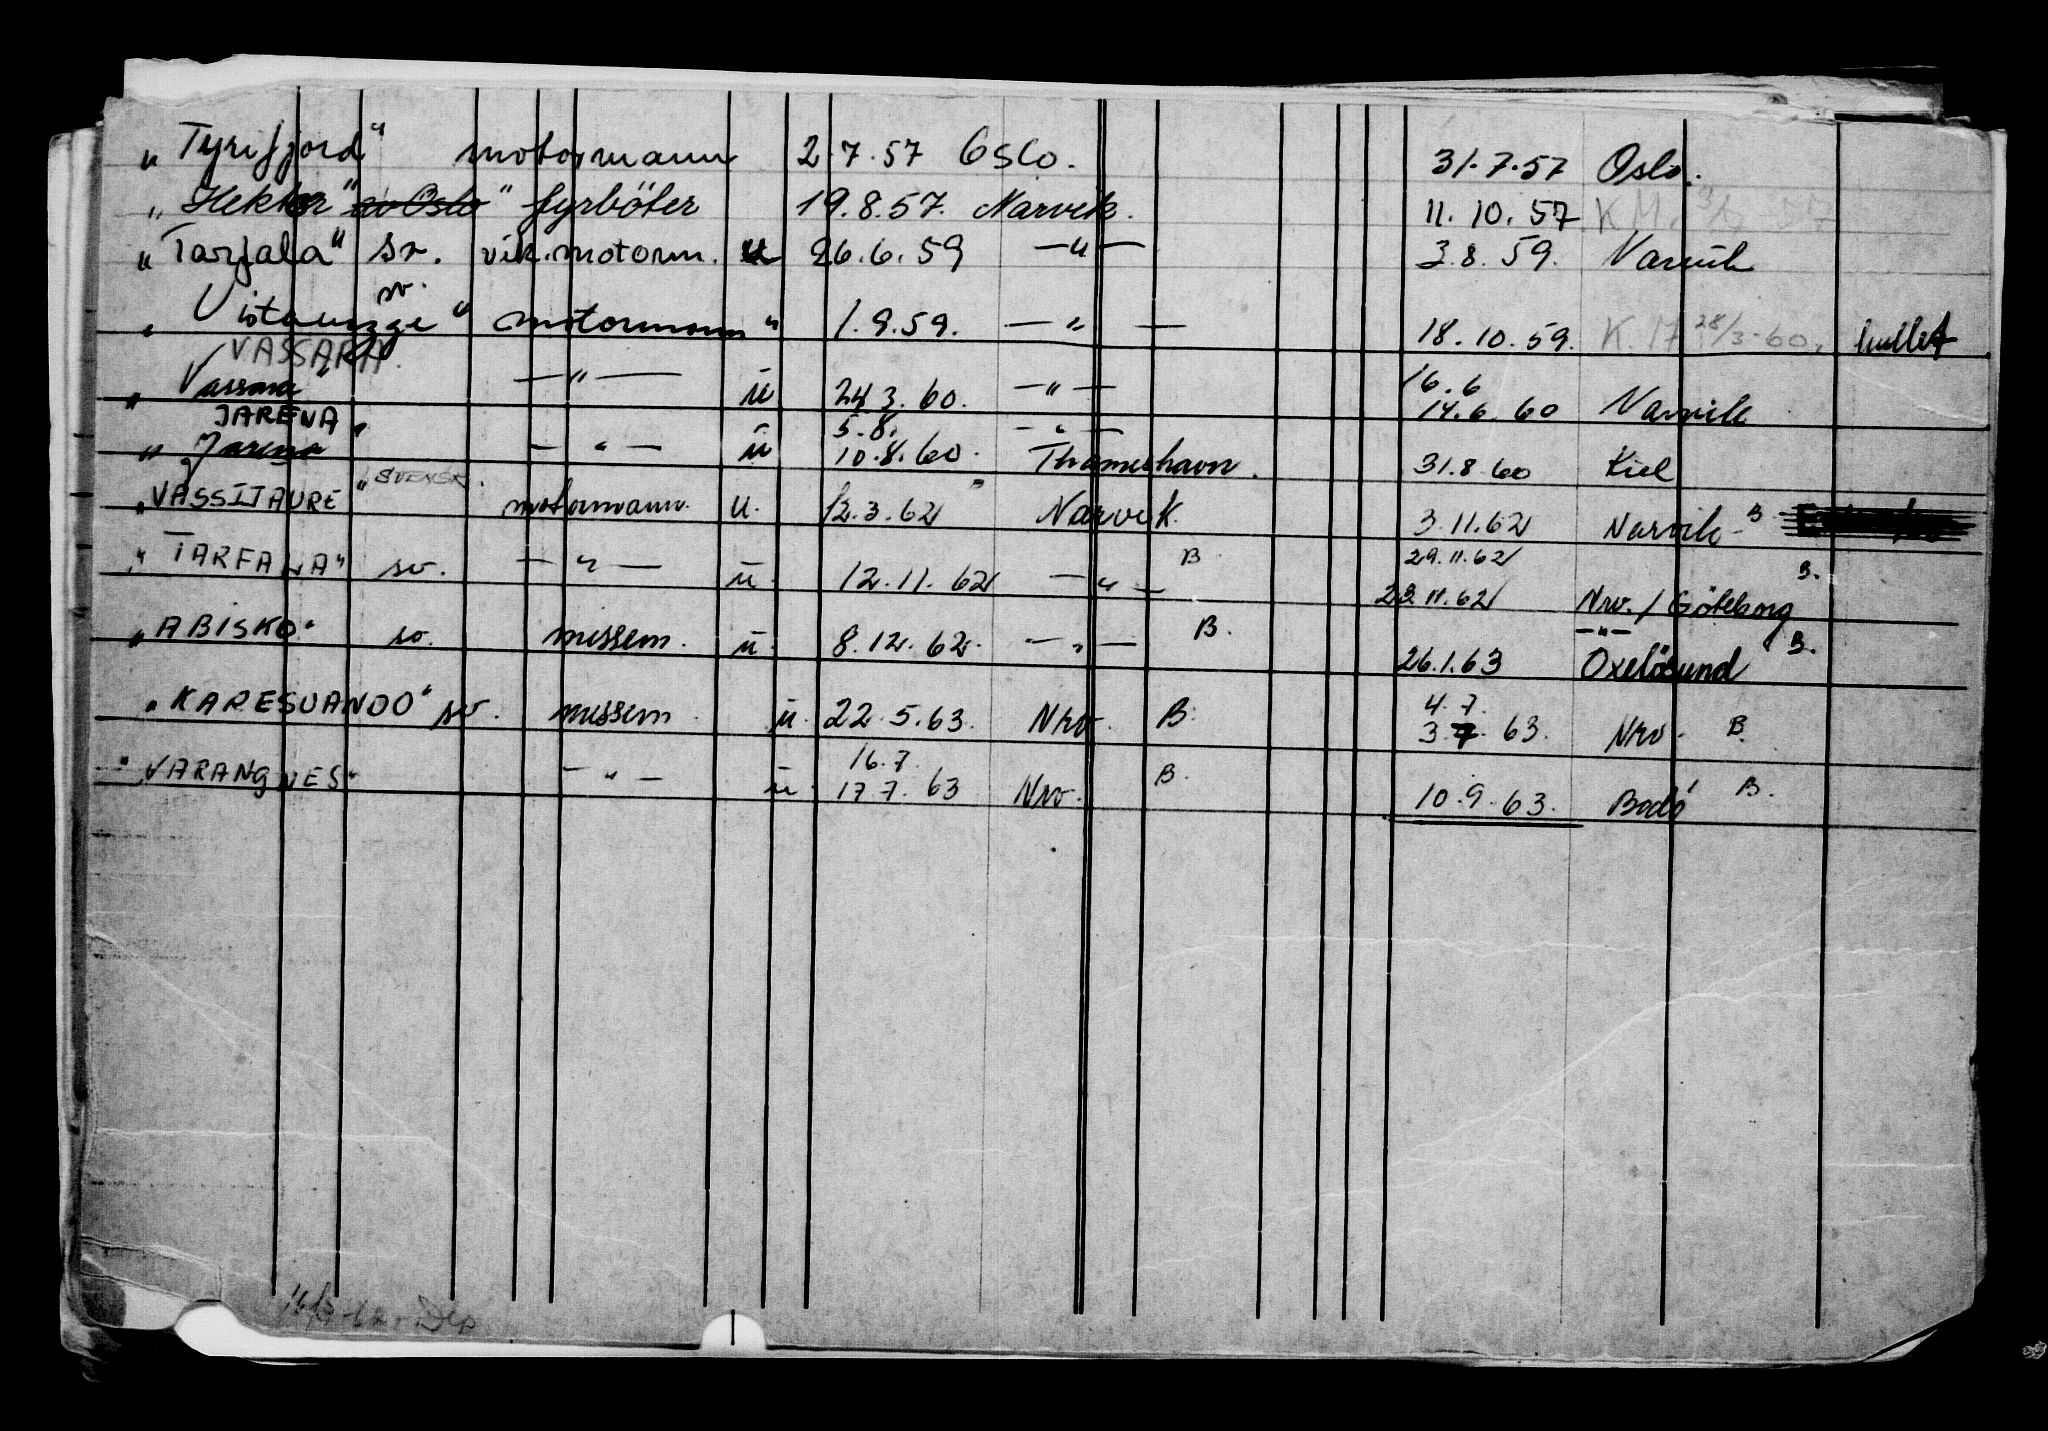 „ Tyrifjord" motormann 2.7.57 Oslo. 31.7.57 Oslo.
„ Hektor" av Oslo" fyrböter 19.8.57. Narvik. 11.10.57 K M.
„ Tarfala" sv. vik. motorm. u 26.6.59 —"— 3.8.59. Narvik
sv.
„ motormann" 1.9.59. —"— 18.10.59. K.M 28/3-60. hullet
VASSARA.
„ Vassara" —"— u 24.3.60. —"— 16.6 14.6.60 Narvik
JARENA" 5.8. —"—
„ Jarena —"— u 10.8.60. Thamshavn. 31.8.60 Kiel
„VASSIJAURE" SVENSK. motormann. u. 12.3.62 Narvik. 3.11.62 Narvik B
„TARFALA" sv. —"— u. 12.11.62 —"— B 29.11.62
23.11.62 Nrv. / Göteborg B.
—"—
„ABISKO" sv. messem. u. 8.12.62. —"— B. 26.1.63 Oxelösund B.
„KARESUANDO" sv. messem. u. 22.5.63. Nrv. B. 4.7. 3.7.63. Nrv. B.
16.7.
"VARANGNES" —"— u. 17.7.63 Nrv. B. 10.9.63. Bodö B.